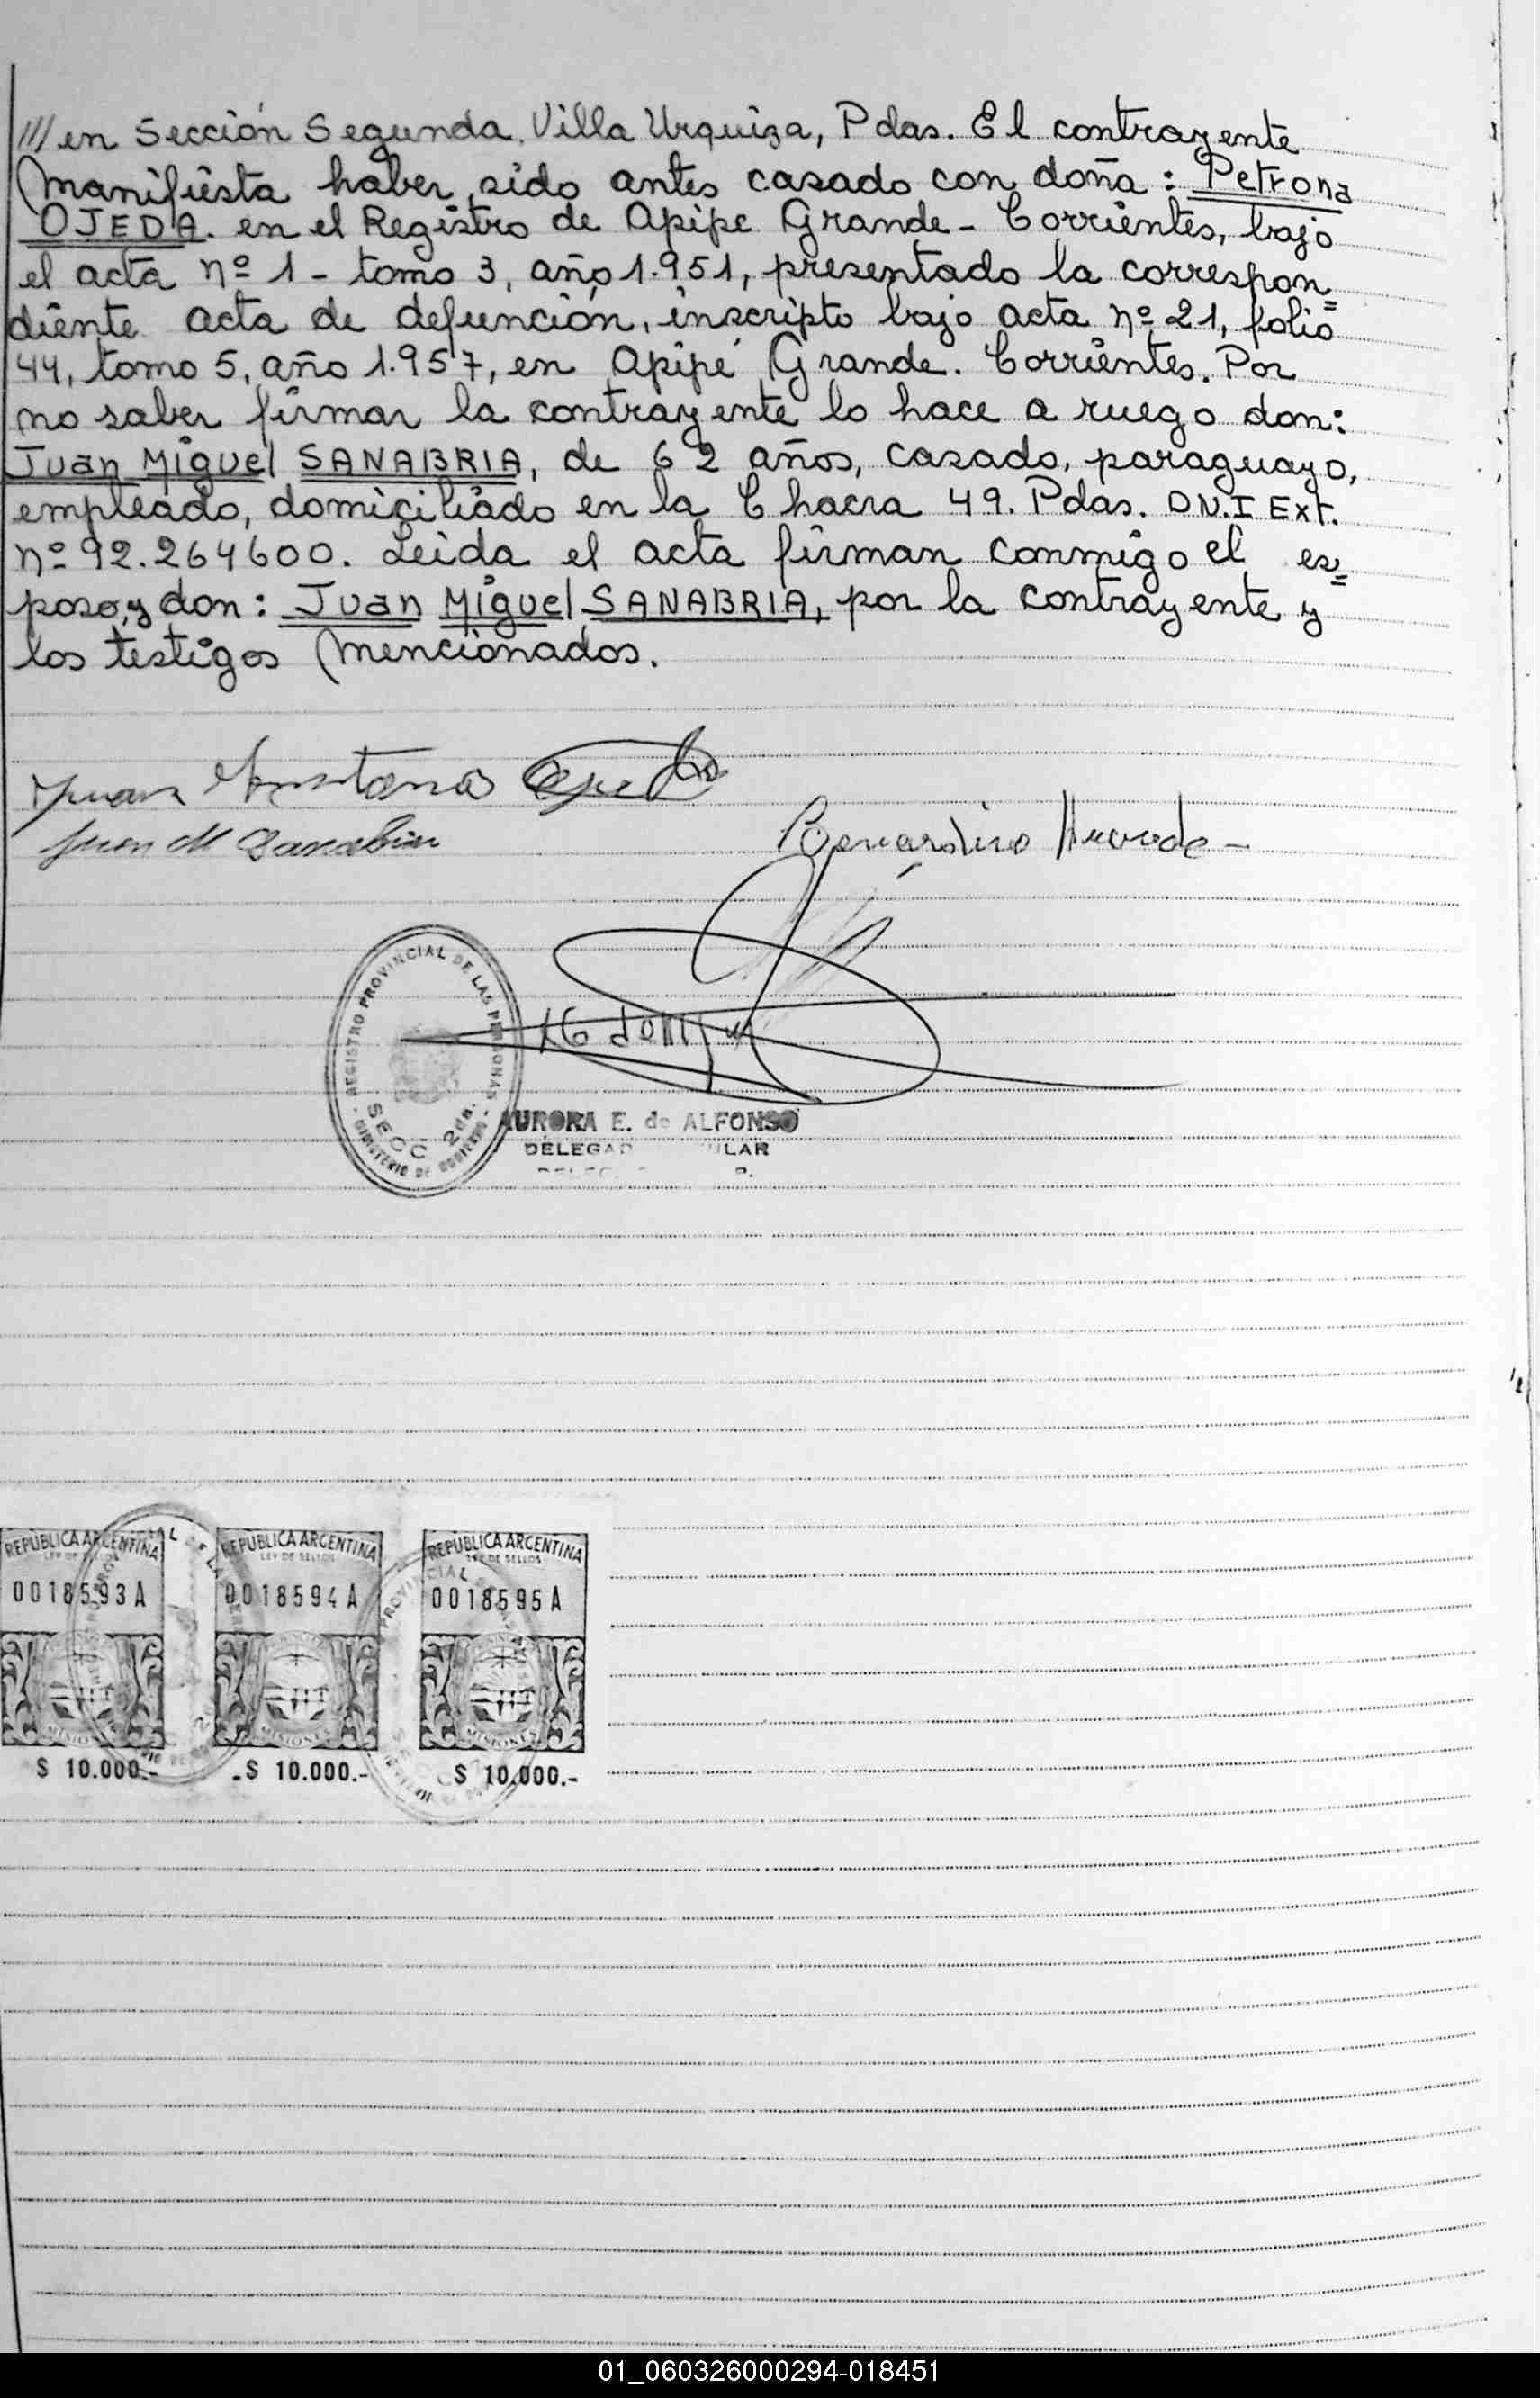 /// en Sección Segunda. Villa Urquiza, Pdas. El contrayente
manifiesta haber sido antes casado con doña: Petrona
OJEDA. en el Registro de Apipe Grande - Corrientes, bajo
el acta nº 1 - tomo 3, año 1.951, presentado la correspon=
diente acta de defunción, inscripto bajo acta nº 21, folio
44, tomo 5, año 1.957, en Apipé Grande. Corrientes. Por
no saber firmar la contrayente lo hace a ruego don:
Juan Miguel SANABRIA, de 62 años, casado, paraguayo,
empleado, domiciliado en la Chacra 49. Pdas. D.N.I Ext.
nº 92.264600. Leida el acta firman conmigo el es=
poso, y don: Juan Miguel SANABRIA, por la contrayente y
los testigos mencionados.
Juan
Juan M Sanabria
Bernardino
REGISTRO PROVINCIAL DE LAS PERSONAS
SECC 2da.
MINISTERIO DE GOBIERNO
AURORA E. de ALFONSO
REPUBLICA ARGENTINA
LEY DE SELLOS
0018593A
MISIONES
$ 10.000.-
REPUBLICA ARGENTINA
LEY DE SELLOS
0018594A
MISIONES
$ 10.000.-
REPUBLICA ARGENTINA
LEY DE SELLOS
0018595A
MISIONES
$ 10.000.-
01_060326000294-018451